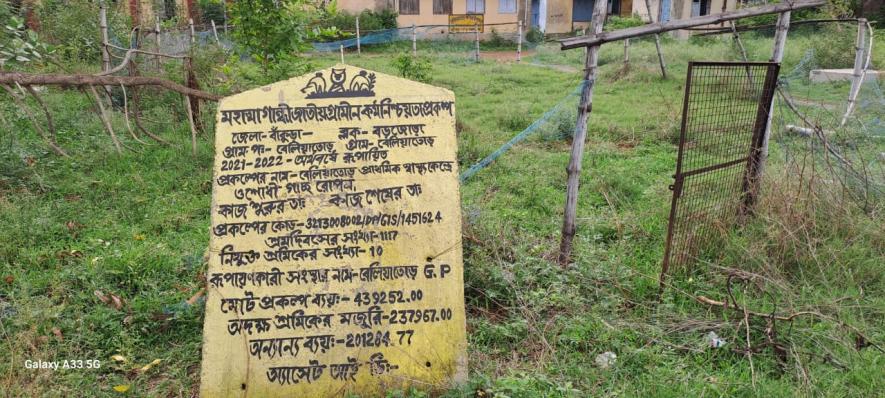 মহাত্মা গান্ধী জাতীয় গ্রামীন কর্মনিশ্চয়তা প্রকল্প
জেলা- বাঁকুড়া- ব্লক- বড়জোড়া
গ্রাম পঃ- বেলিয়াতোড়, গ্রাম- বেলিয়াতোড়
2021-2022 - অর্থবর্ষে রূপায়িত
প্রকল্পের নাম- বেলিয়াতোড় প্রাথমিক স্বাস্থ্যকেন্দ্রে
ওশোধী গাছ রোপন,
কাজ শুরুর তাং কাজ শেষের তাং
প্রকল্পের কোড- 3213008002/DP/GIS/1451624
শ্রমদিবসের সংখ্যা- 1117
নিযুক্ত শ্রমিকের সংখ্যা- 10
রূপায়ণকারী সংস্থার নাম- বেলিয়াতোড় G.P
মোট প্রকল্প ব্যয়:- 439252.00
অদক্ষ শ্রমিকের মজুরি- 237967.00
অন্যান্য ব্যয়:- 201284.77
অ্যাসেট আই ডি:-
Galaxy A33 5G